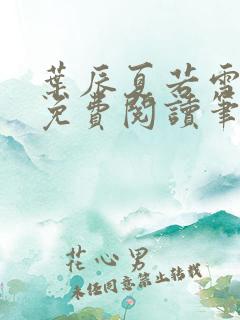 葉辰夏若雪
免費閱讀筆
花心男
未經同意禁止轉載